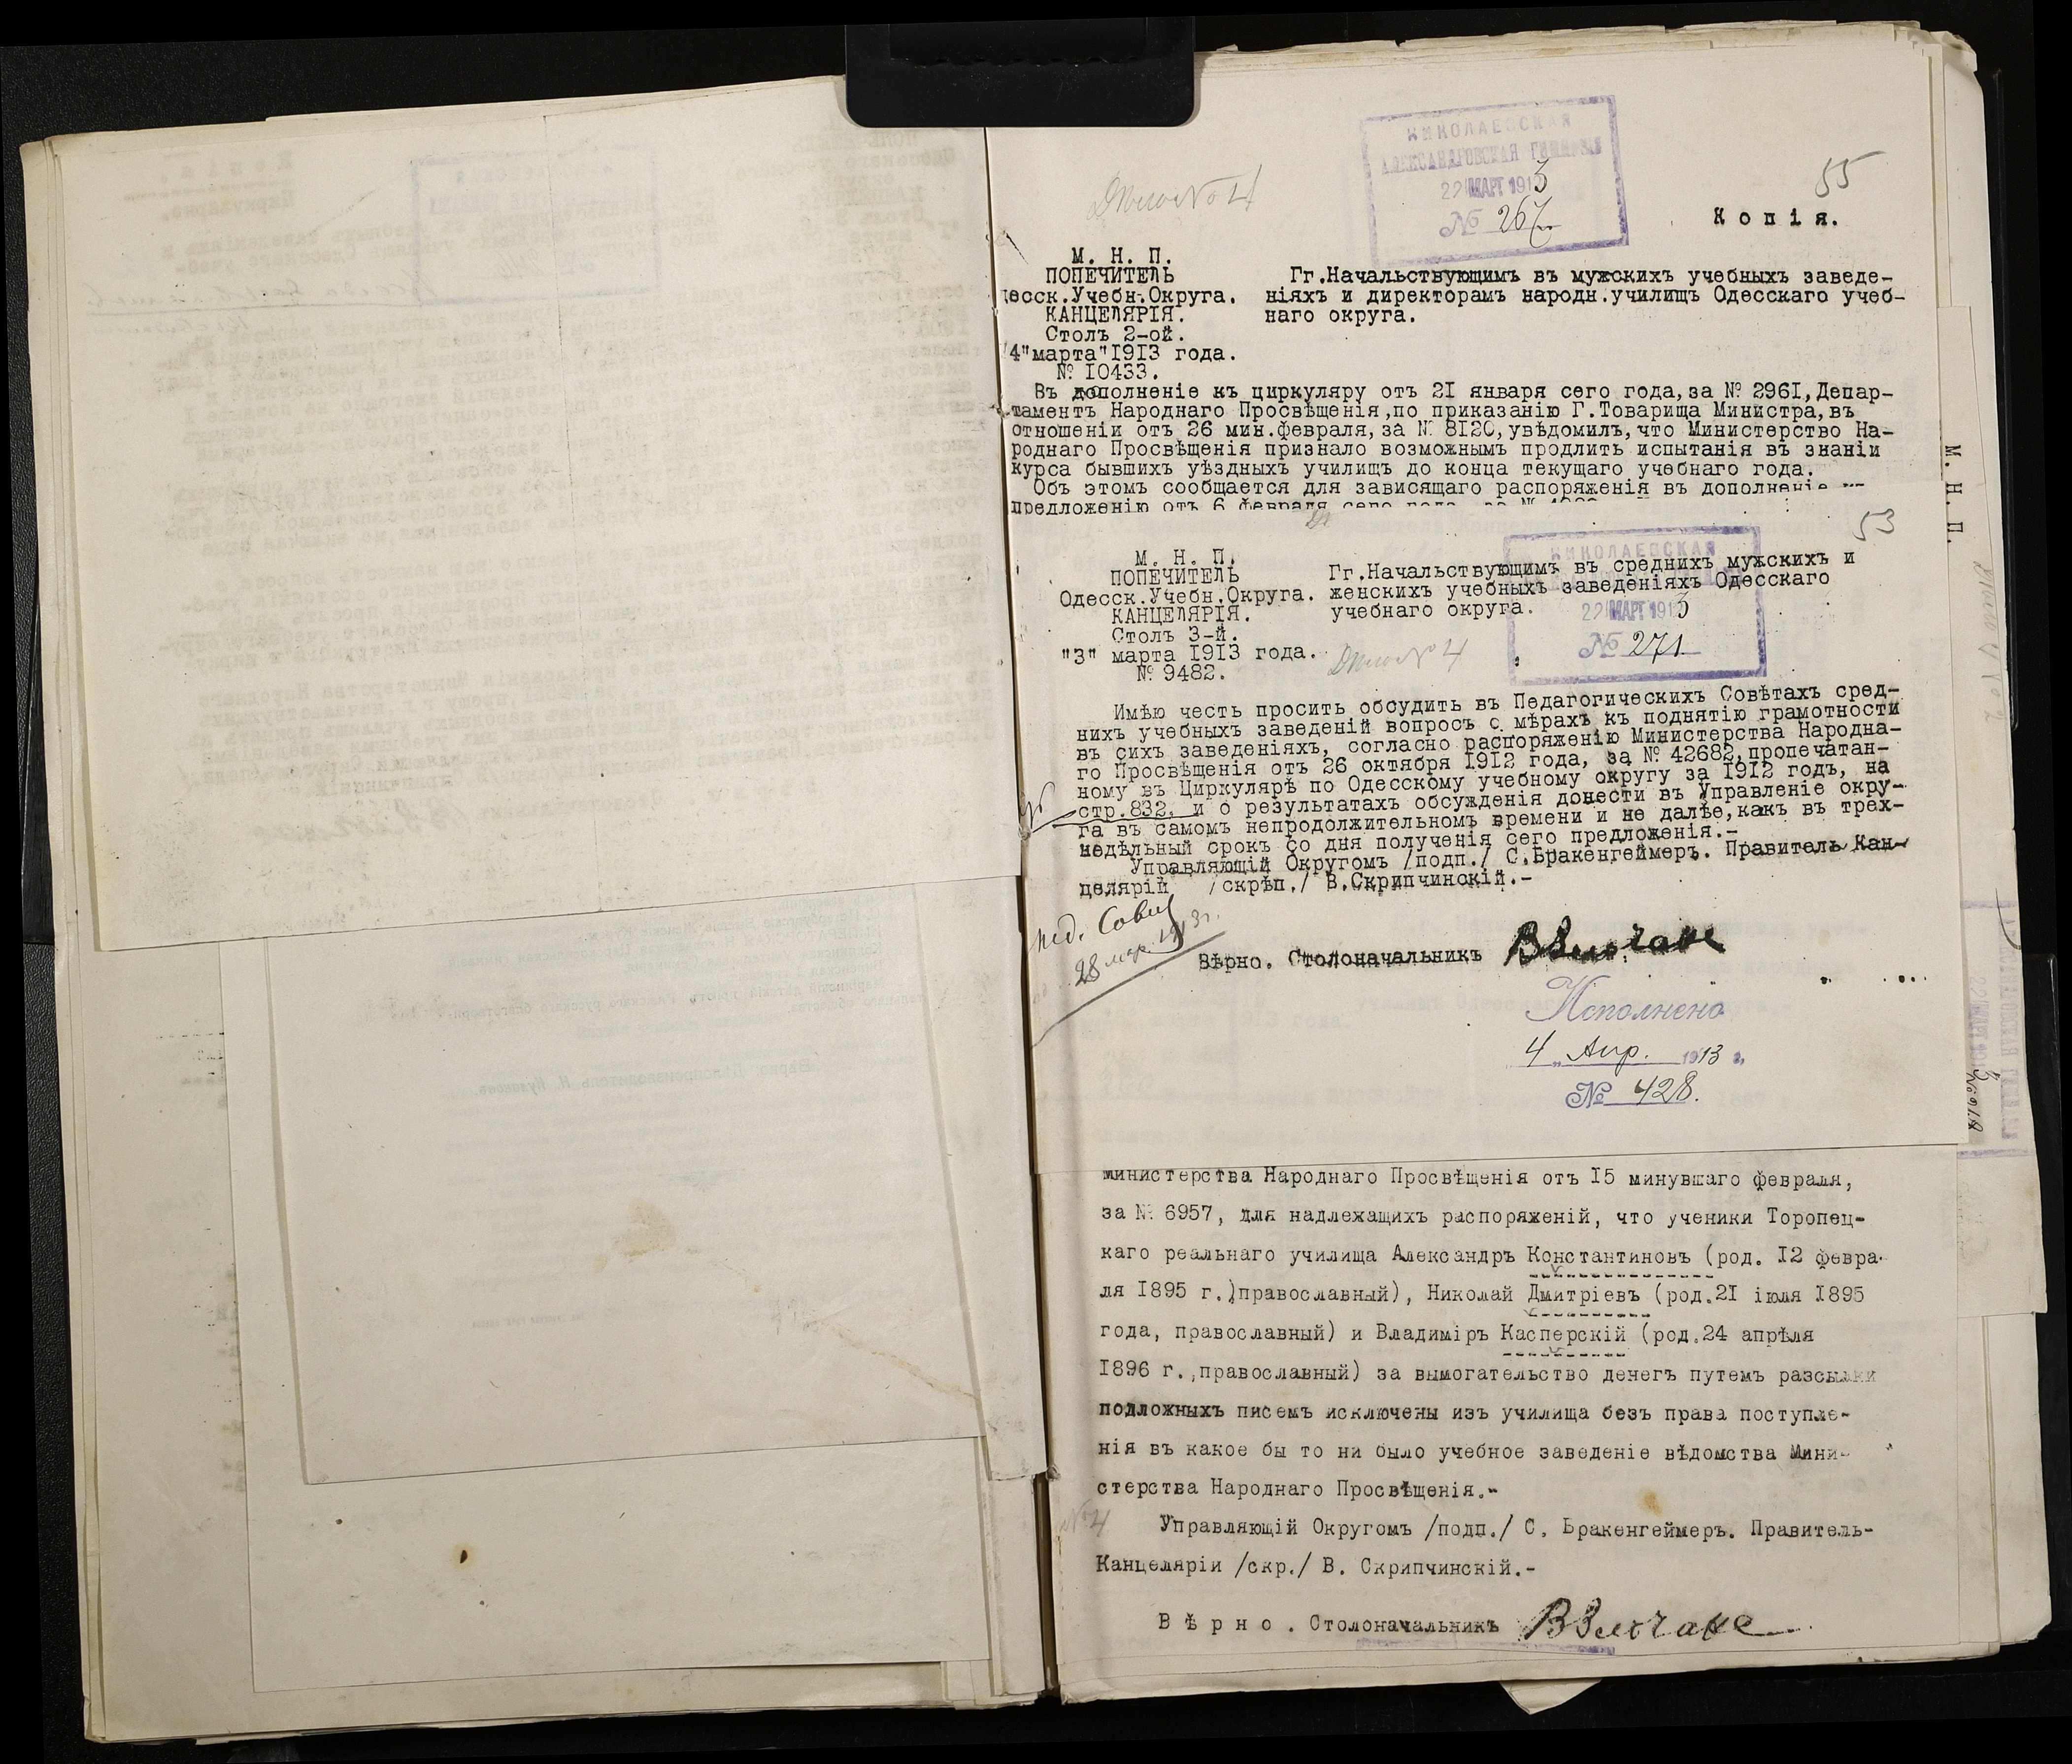 НИКОЛАЕВСКАЯ
АЛЕКСАНДРОВСКАЯ ГИМНАЗІЯ
22 МАРТ 1913
№ 267
55
Дѣло № 4
Копія.
М. Н. П.
ПОПЕЧИТЕЛЬ
десск.Учебн.Округа.
КАНЦЕЛЯРІЯ.
Столъ 2-ой.
4"марта"1913 года.
№ 10433.
Гг.Начальствующимъ въ мужскихъ учебныхъ заведе-
ніяхъ и директорамъ народн.училищъ Одесскаго учеб-
наго округа.
Въ дополненіе къ циркуляру отъ 21 января сего года,за № 2961,Депар-
таментъ Народнаго Просвѣщенія,по приказанію Г.Товарища Министра,въ
отношеніи отъ 26 мин.февраля,за № 8120,увѣдомилъ,что Министерство На-
роднаго Просвѣщенія признало возможнымъ продлить испытанія въ знаніи
курса бывшихъ уѣздныхъ училищъ до конца текущаго учебнаго года.
Объ этомъ сообщается для зависящаго распоряженія въ дополненіе
предложенію отъ 6 февраля сего года
53
М. Н. П.
ПОПЕЧИТЕЛЬ
Одесск.Учебн.Округа.
КАНЦЕЛЯРІЯ.
Столъ 3-й.
"3" марта 1913 года.
№ 9482.
НИКОЛАЕВСКАЯ
Гг.Начальствующимъ въ среднихъ мужскихъ и
женскихъ учебныхъ заведеніяхъ Одесскаго
учебнаго округа.
22 МАРТ 1913
№ 271
Дѣло № 4
Имѣю честь просить обсудить въ Педагогическихъ Совѣтахъ сред-
нихъ учебныхъ заведеній вопросъ о мѣрахъ къ поднятію грамотности
въ сихъ заведеніяхъ, согласно распоряженію Министерства Народна-
го Просвѣщенія отъ 26 октября 1912 года, за № 42682,пропечатан-
ному въ Циркулярѣ по Одесскому учебному округу за 1912 годъ, на
стр.832, и о результатахъ обсужденія донести въ Управленіе окру-
га въ самомъ непродолжительномъ времени и не далѣе,какъ въ трех-
недѣльный срокъ со дня полученія сего предложенія.-
Управляющій Округомъ /подп./ С.Бракенгеймеръ. Правитель Кан-
целярій /скрѣп./ В.Скрипчинскій.-
пед. Совѣт
28 мар. 1913г.
Вѣрно. Столоначальникъ
Исполнено
4 Апр. 1913 г.
№ 428.
Министерства Народнаго Просвѣщенія отъ 15 минувшаго февраля,
за № 6957, для надлежащихъ распоряженій, что ученики Торопец-
каго реальнаго училища Александръ Константиновъ (род. 12 февра-
ля 1895 г.)православный), Николай Дмитріевъ (род.21 іюля 1895
года, православный) и Владиміръ Касперскій (род.24 апрѣля
1896 г.,православный) за вымогательство денегъ путемъ разсылки
подложныхъ писемъ исключены изъ училища безъ права поступле-
нія въ какое бы то ни было учебное заведеніе вѣдомства Мини-
стерства Народнаго Просвѣщенія.-
№ 4
Управляющій Округомъ /подп./ С. Бракенгеймеръ. Правитель-
Канцеляріи /скр./ В. Скрипчинскій.-
Вѣрно. Столоначальникъ
М. Н. П.